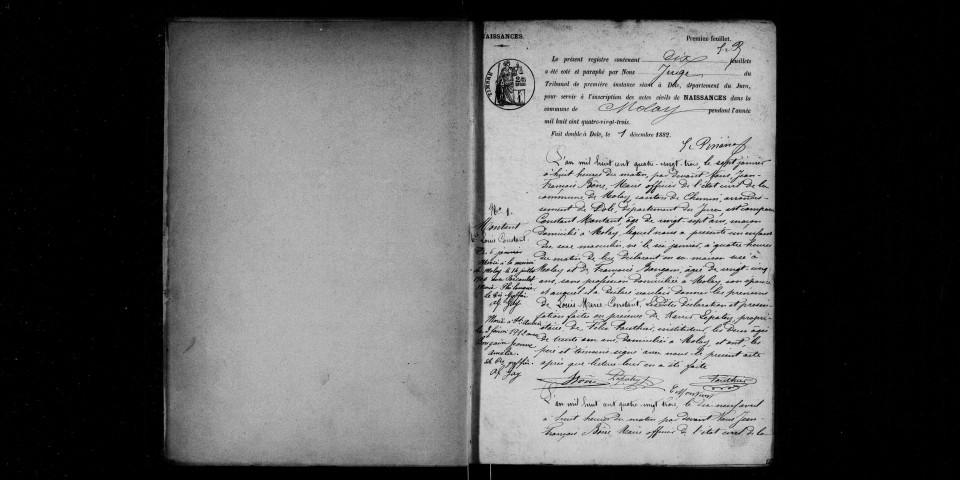 NAISSANCES.
Premier feuillet.
Le présent registre contenant dix feuillets
a été coté et paraphé par Nous Juge du
Tribunal de première instance séant à Dole, département du Jura,
pour servir à l'inscription des actes civils de NAISSANCES dans la
commune de Molay pendant l'année
mil huit cent quatre-vingt-trois.
Fait double à Dole, le 1 décembre 1882.
TIMBRE
L'an mil huit cent quatre-vingt trois, le sept janvier
à huit heures du matin, par devant Nous Jean-
François Boire, Maire officier de l'état civil de la
commune de Molay, canton de Chemin, arrondis-
sement de Dole, département du Jura, est comparu
Constant Montant, âgé de vingt sept ans, maçon
domicilié à Molay, lequel nous a présenté un enfant
du sexe masculin, né le six janvier, à quatre heures
du matin de lui déclarant en sa maison sise à
Molay et de Françoise âgée de vingt cinq
ans, sans profession domiciliée à Molay, son épouse
et auquel il a déclaré vouloir donner les prénoms
de Louis Marie Constant. Lesdites déclaration et présen-
tation faites en présence de Xavier Lepatey, propri-
étaire de Félix Pauthier, instituteur, les deux âgés
de trente ans domiciliés à Molay et ont, les
père et témoins signé avec nous le présent acte
après que lecture leur en a été faite
N° 1.
Montant
Louis Constant
6 janvier
Marié à la mairie
de Molay le 16 juillet
Marié à St
le 3 février 1912 avec
Jeanne
Amélie
Boire Lepatey Pauthier
L'an mil huit cent quatre-vingt trois, le dix neuf avril
à huit heures du matin par devant Nous Jean-
François Boire Maire officier de l'état civil de la